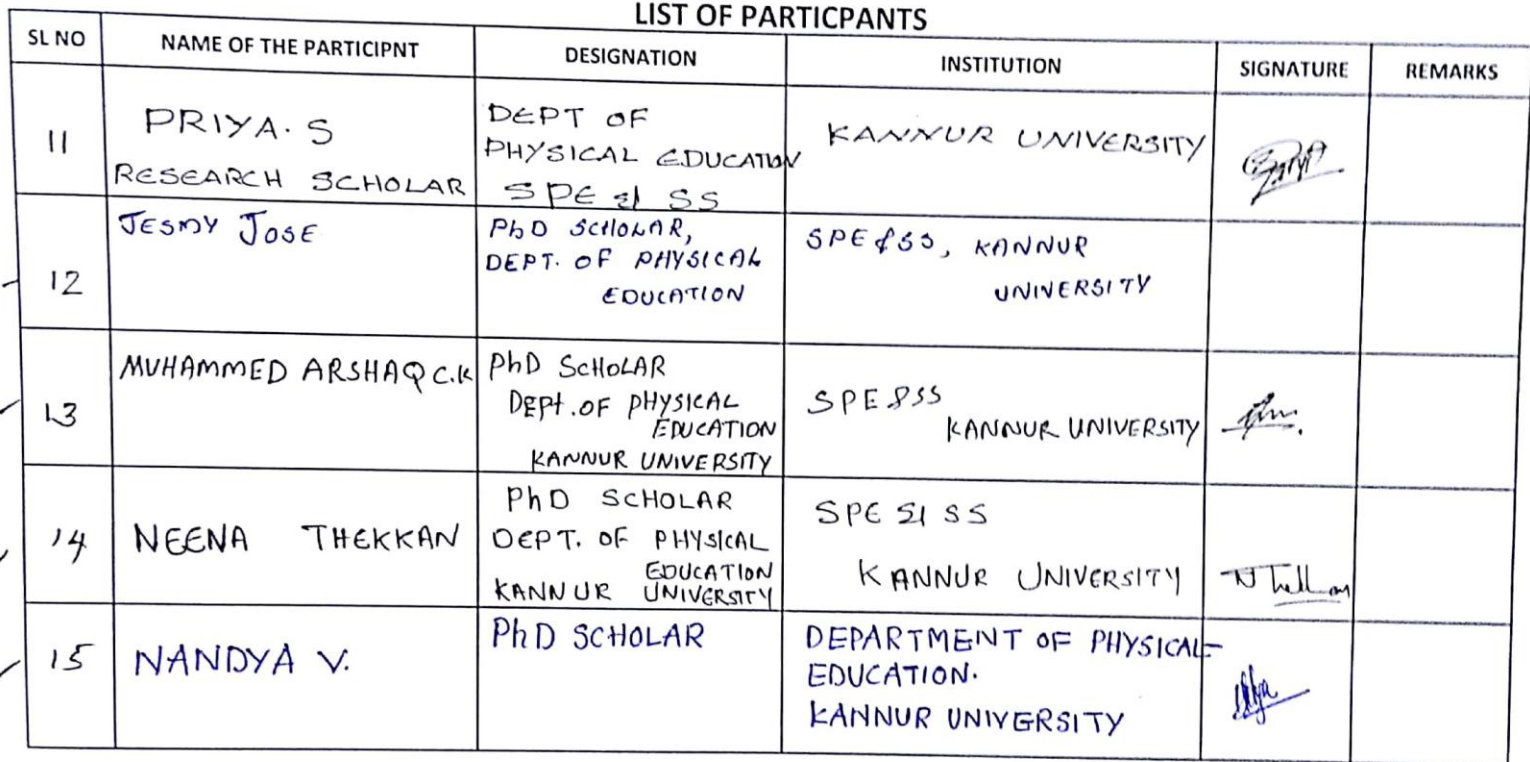 LIST OF PARTICPANTS
SL NO NAME OF THE PARTICIPNT DESIGNATION INSTITUTION SIGNATURE REMARKS
11
PRIYA. S
RESEARCH SCHOLAR
DEPT OF
PHYSICAL EDUCATION
SPE & SS
KANNUR UNIVERSITY
12
JESMY JOSE
PhD SCHOLAR,
DEPT. OF PHYSICAL
EDUCATION
SPE & SS, KANNUR
UNIVERSITY
13
MUHAMMED ARSHAQ C.K
PhD SCHOLAR
DEPT. OF PHYSICAL
EDUCATION
KANNUR UNIVERSITY
SPE & SS
KANNUR UNIVERSITY
14
NEENA THEKKAN
PhD SCHOLAR
DEPT. OF PHYSICAL
EDUCATION
KANNUR UNIVERSITY
SPE & SS
KANNUR UNIVERSITY
15
NANDYA V.
PhD SCHOLAR
DEPARTMENT OF PHYSICAL
EDUCATION.
KANNUR UNIVERSITY